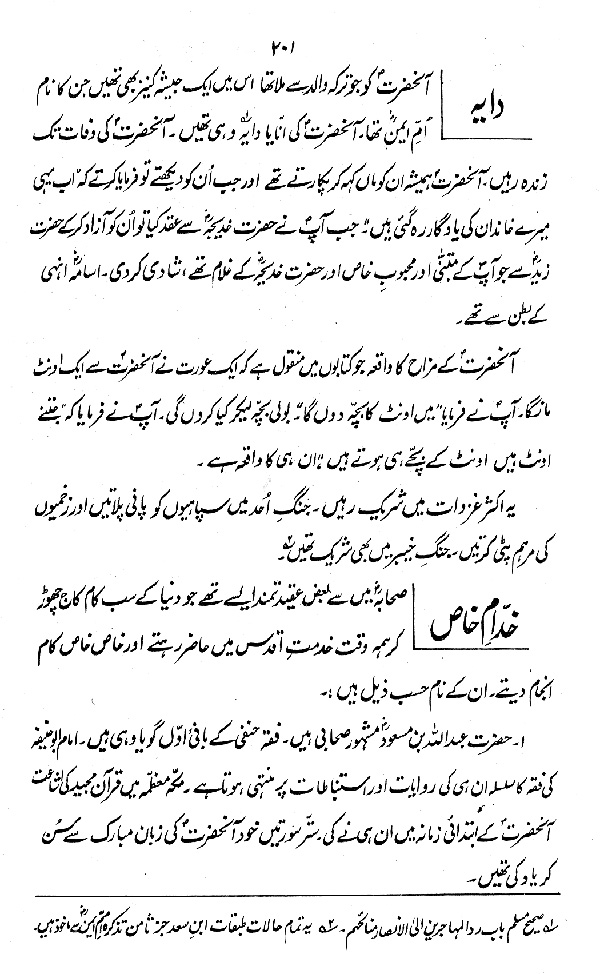 ۲۰۱
دایہ
آنحضرتؐ کو جو ترکہ والد سے ملا تھا اس میں ایک حبشیہ کنیز بھی تھیں جن کا نام
اُمِّ ایمنؓ تھا۔ آنحضرتؐ کی انّا یا دایہ وہی تھیں۔ آنحضرتؐ کی وفات تک
زندہ رہیں۔ آنحضرتؐ ہمیشہ ان کو ماں کہہ کر پکارتے تھے اور جب اُن کو دیکھتے تو فرمایا کرتے کہ ”اب یہی
میرے خاندان کی یادگار رہ گئی ہیں“ جب آپؐ نے حضرت خدیجہؓ سے عقد کیا تو اُن کو آزاد کر کے حضرت
زیدؓ سے جو آپؐ کے متبنّٰی اور محبوبِ خاص اور حضرت خدیجہؓ کے غلام تھے، شادی کر دی۔ اسامہؓ انہی
کے بطن سے تھے۔
آنحضرتؐ کے مزاح کا واقعہ جو کتابوں میں منقول ہے کہ ایک عورت نے آنحضرتؐ سے ایک اونٹ
مانگا۔ آپؐ نے فرمایا ”میں اونٹ کا بچّہ دوں گا“ بولی بچّہ لیکر کیا کروں گی۔ آپؐ نے فرمایا کہ ”جتنے
اونٹ ہیں اونٹ کے بچّے ہی ہوتے ہیں“ ان ہی کا واقعہ ہے۔
یہ اکثر غزوات میں شریک رہیں۔ جنگِ اُحد میں سپاہیوں کو پانی پلاتیں اور زخمیوں
کی مرہم پٹی کرتیں۔ جنگِ خیبر میں بھی شریک تھیں۲؎
خدّامِ خاص
صحابہؓ میں سے بعض عقیدتمند ایسے تھے جو دنیا کے سب کام کاج چھوڑ
کر ہمہ وقت خدمتِ اقدس میں حاضر رہتے اور خاص خاص کام
انجام دیتے۔ ان کے نام حسب ذیل ہیں:۔
۱۔ حضرت عبداللہ بن مسعودؓ مشہور صحابی ہیں۔ فقہ حنفی کے بانیٔ اوّل گویا وہی ہیں۔ امام ابوحنیفہ
کی فقہ کا سلسلہ ان ہی کی روایات اور استنباطات پر منتہی ہوتا ہے۔ مکّہ معظّمہ میں قرآن مجید کی اشاعت
آنحضرتؐ کے ابتدائی زمانہ میں ان ہی نے کی۔ ستّر سورتیں خود آنحضرتؐ کی زبان مبارک سے سُن
کر یاد کی تھیں۔
۱؎ صحیح مسلم باب رد المہاجرین الی الانصار منائحہم۔ ۲؎ یہ تمام حالات طبقات ابنِ سعد جزء ثامن تذکرہ ام ایمنؓ سے ماخوذ ہیں۔